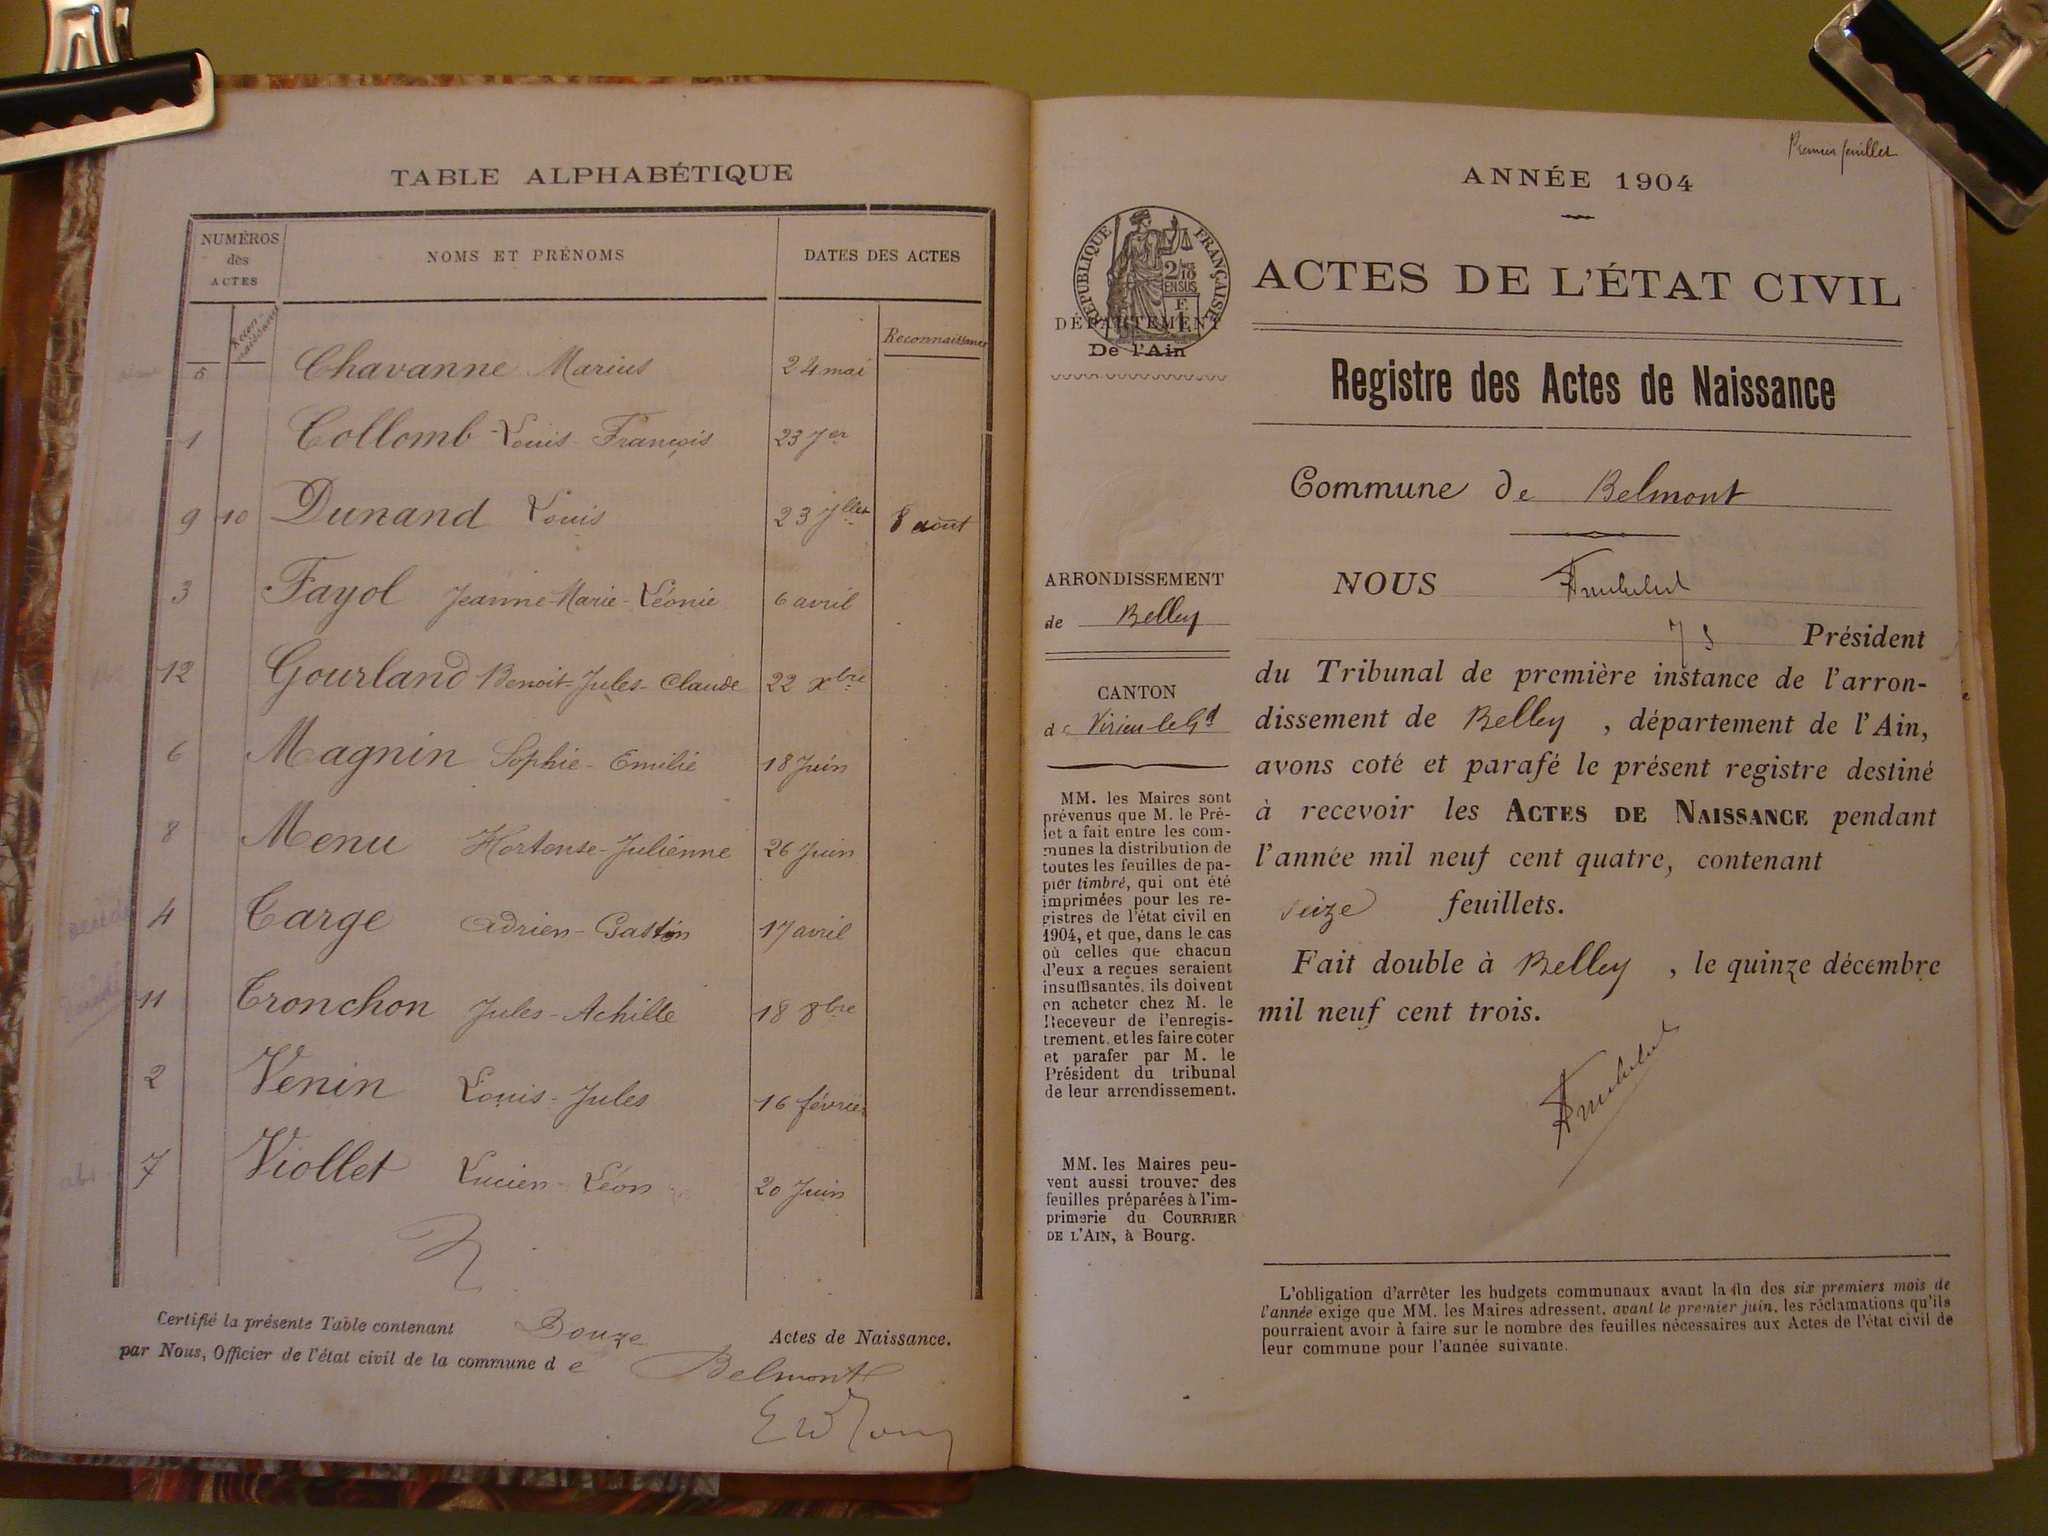 TABLE ALPHABÉTIQUE
NUMÉROS
des
ACTES
NOMS ET PRÉNOMS
DATES DES ACTES
Recon-
naissances
Reconnaissances
5 Chavanne Marius 24 mai
1 Collomb Louis-François 23 Jer
9 10 Dunand Louis 23 Jllet 8 août
3 Fayol Jeanne-Marie-Léonie 6 avril
12 Gourland Benoit-Jules-Claude 22 xbre
6 Magnin Sophie-Emilie 18 Juin
8 Menu Hortense-Julienne 26 Juin
4 Targe Adrien-Gaston 17 avril
11 Tronchon Jules-Achille 18 8bre
2 Venin Louis-Jules 16 février
7 Viollet Lucien-Léon 20 Juin
Certifié la présente Table contenant Douze Actes de Naissance.
par Nous, Officier de l'état civil de la commune de Belmont
Premier feuillet
ANNÉE 1904
RÉPUBLIQUE FRANÇAISE
2/10
EN SUS
DÉPARTEMENT
De l'Ain
ACTES DE L'ÉTAT CIVIL
Registre des Actes de Naissance
Commune de Belmont
ARRONDISSEMENT
de Belley
CANTON
de Virieu-le-Gd
MM. les Maires sont
prévenus que M. le Pré-
fet a fait entre les com-
munes la distribution de
toutes les feuilles de pa-
pier timbré, qui ont été
imprimées pour les re-
gistres de l'état civil en
1904, et que, dans le cas
où celles que chacun
d'eux a reçues seraient
insuffisantes, ils doivent
en acheter chez M. le
Receveur de l'enregis-
trement, et les faire coter
et parafer par M. le
Président du tribunal
de leur arrondissement.
MM. les Maires peu-
vent aussi trouver des
feuilles préparées à l'im-
primerie du COURRIER
DE L'AIN, à Bourg.
NOUS
Président
du Tribunal de première instance de l'arron-
dissement de Belley, département de l'Ain,
avons coté et parafé le présent registre destiné
à recevoir les ACTES DE NAISSANCE pendant
l'année mil neuf cent quatre, contenant
seize feuillets.
Fait double à Belley, le quinze décembre
mil neuf cent trois.
L'obligation d'arrêter les budgets communaux avant la fin des six premiers mois de
l'année exige que MM. les Maires adressent, avant le premier juin, les réclamations qu'ils
pourraient avoir à faire sur le nombre des feuilles nécessaires aux Actes de l'état civil de
leur commune pour l'année suivante.